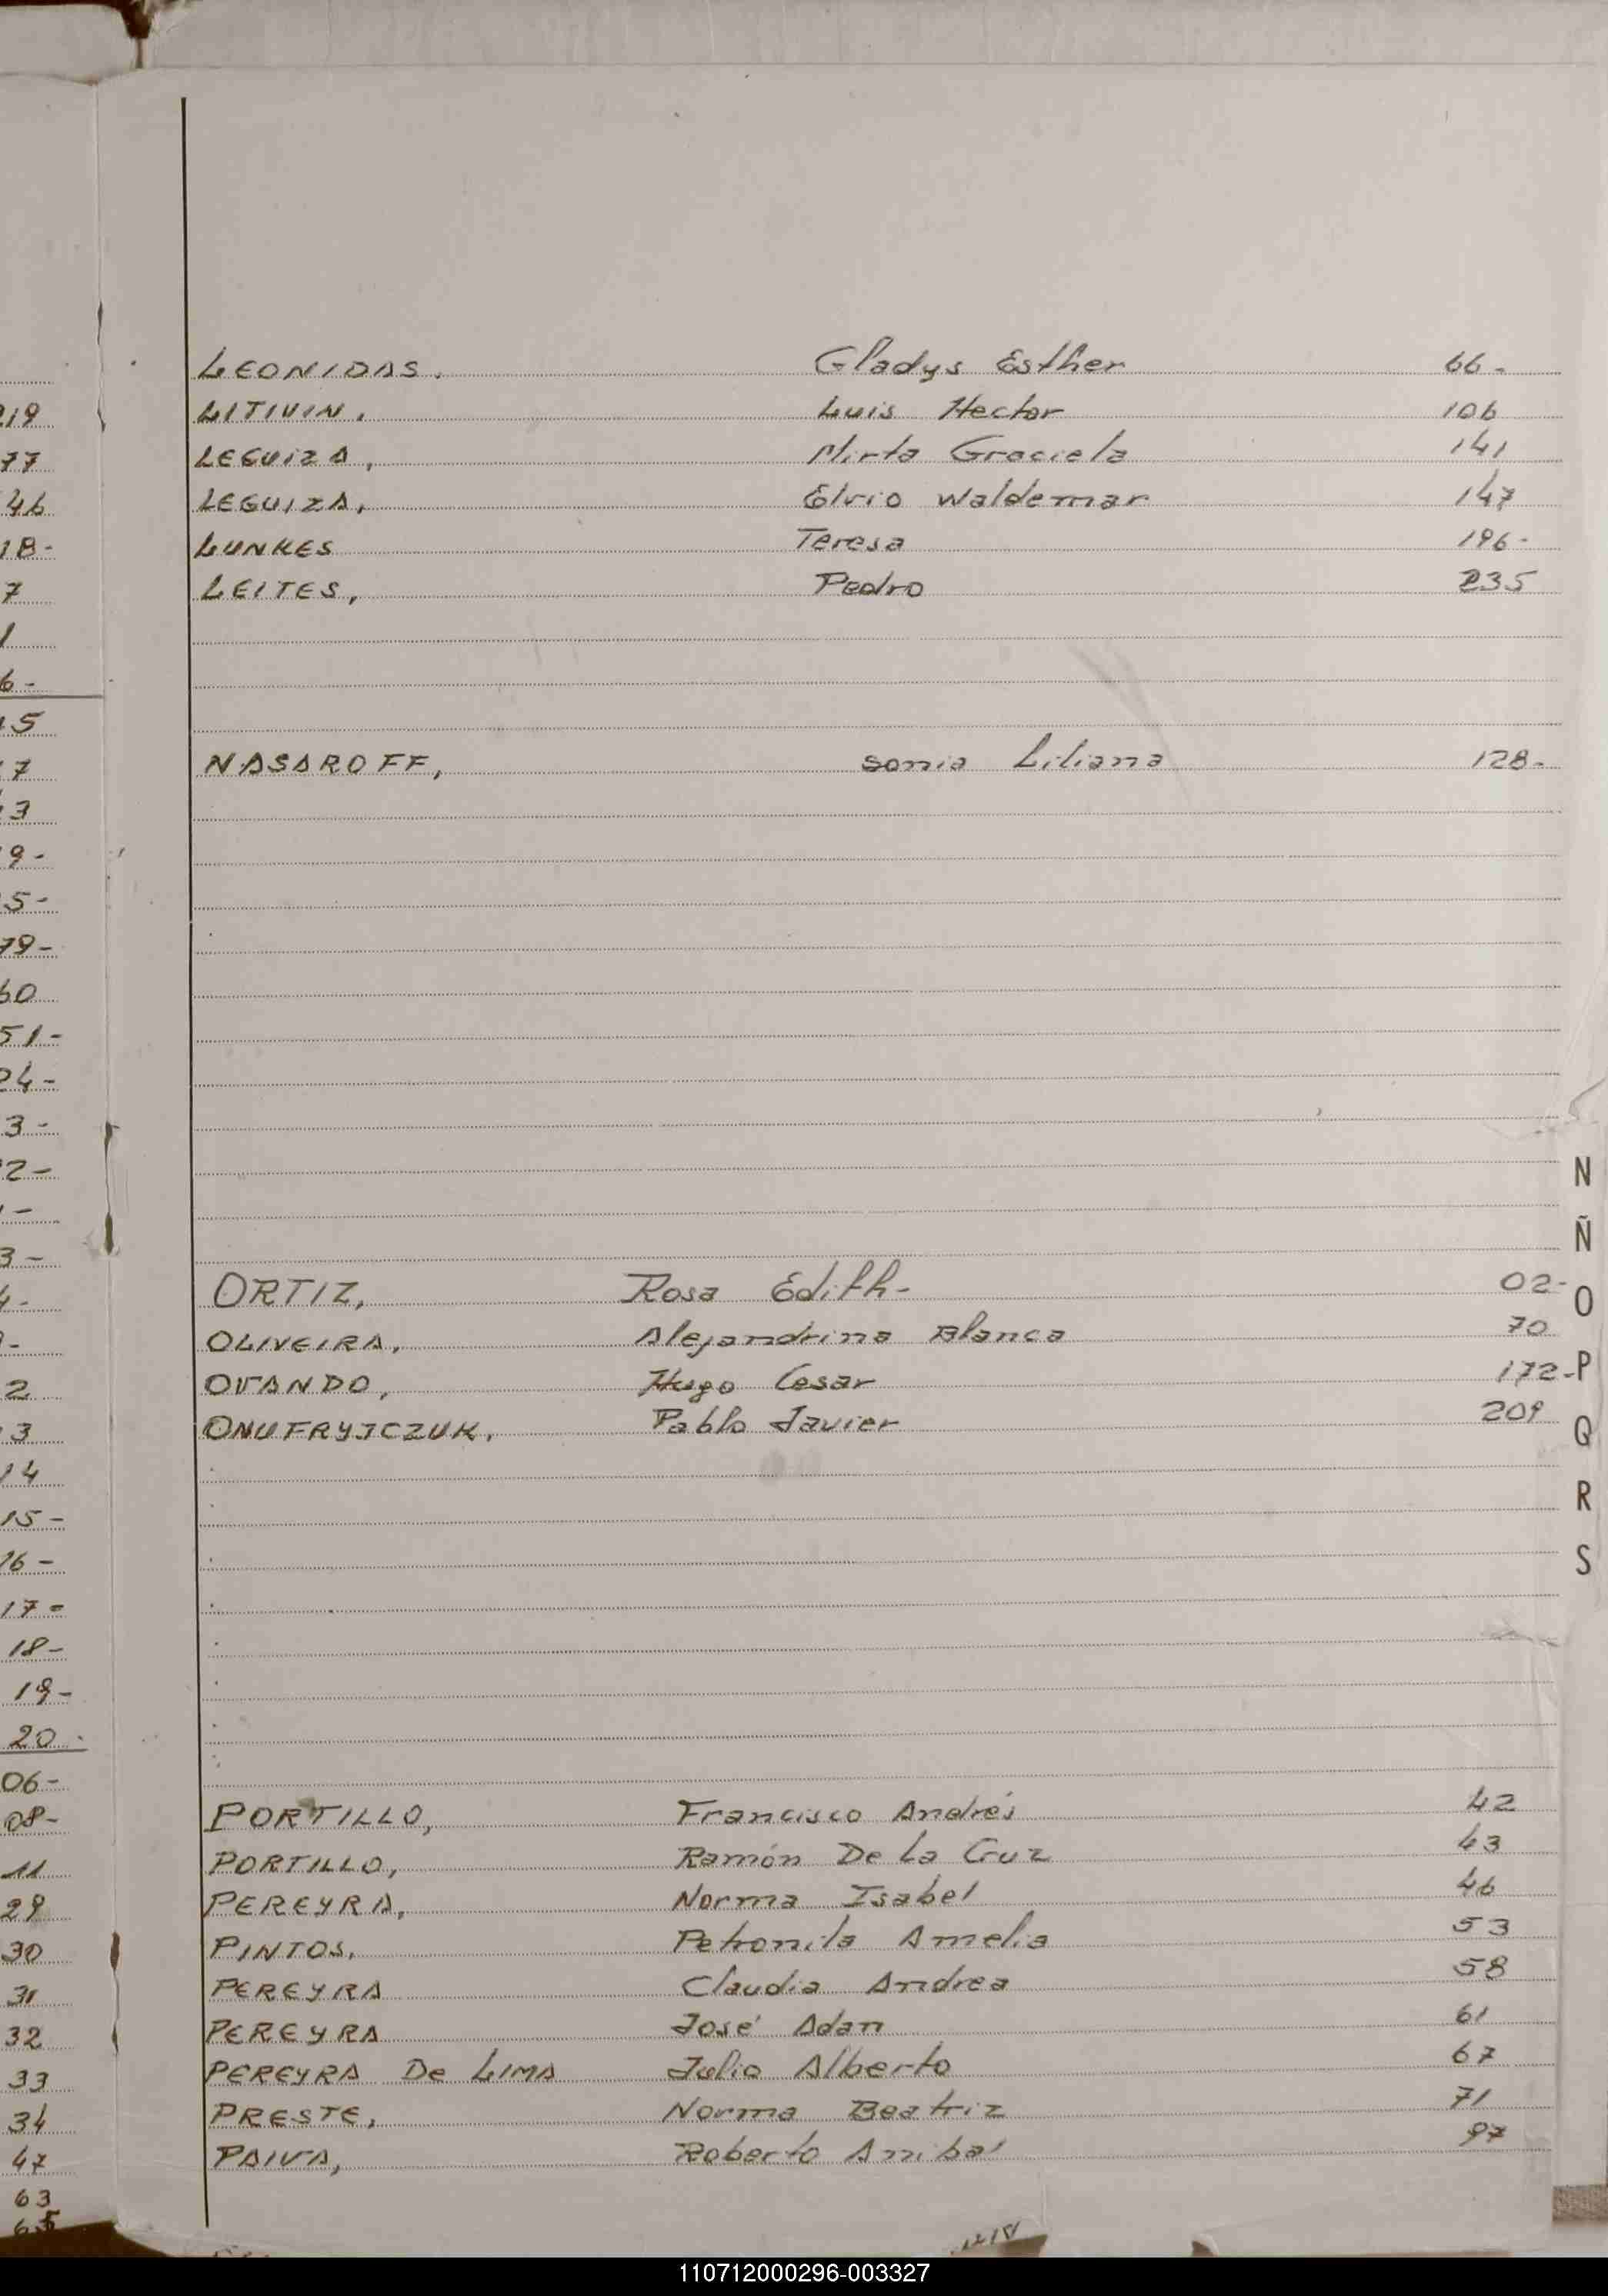 LEONIDAS. Gladys Esther 66-
LITIVIN. Luis Hector 106
LEGUIZA, Mirta Graciela 141
LEGUIZA, Elvio Waldemar 147
LUNKES Teresa 196-
LEITES, Pedro 235
NASAROFF, Sonia Liliana 128-
ORTIZ, Rosa Edith- 02-
OLIVEIRA, Alejandrina Blanca 70
OVANDO, Hugo Cesar 172-
ONUFRYJCZUK, Pablo Javier 209
PORTILLO, Francisco Andrés 42
PORTILLO, Ramón De La Cruz 43
PEREYRA, Norma Isabel 46
PINTOS, Petronila Amelia 53
PEREYRA Claudia Andrea 58
PEREYRA José Adan 61
PEREYRA De LIMA Julio Alberto 67
PRESTE, Norma Beatriz 71
PAIVA, Roberto Anibal 97
N
Ñ
O
P
Q
R
S
19
77
46
18-
7
1
6-
15
7
3
9-
5-
79-
60
51-
24-
3-
2-
3-
4-
2
3
14
15-
16-
17-
18-
19-
20
06-
08-
11
29
30
31
32
33
34
47
63
65
110712000296-003327